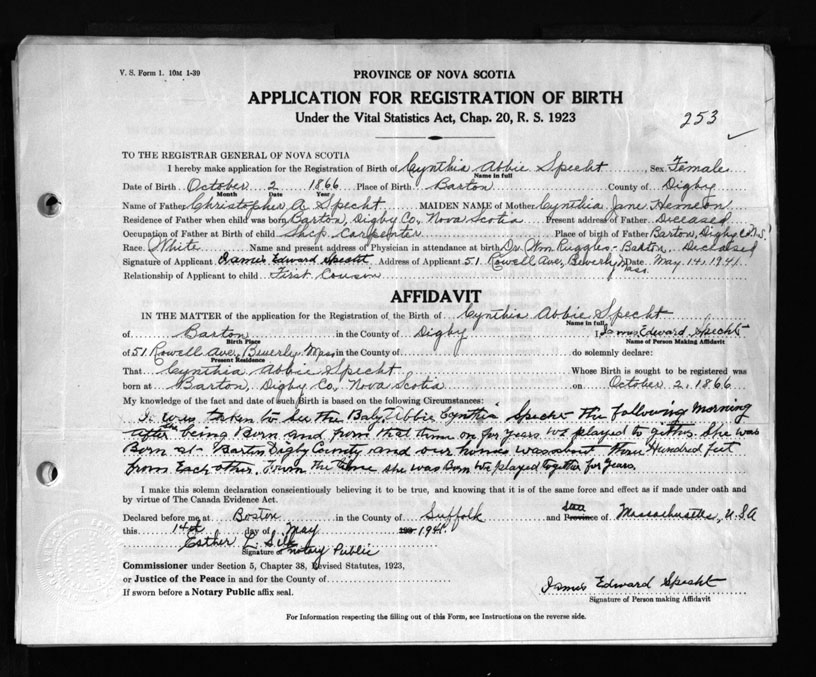 V. S. Form 1. 10M 1-39
PROVINCE OF NOVA SCOTIA
APPLICATION FOR REGISTRATION OF BIRTH
Under the Vital Statistics Act, Chap. 20, R. S. 1923
253
TO THE REGISTRAR GENERAL OF NOVA SCOTIA
I hereby make application for the Registration of Birth of Cynthia Abbie Specht, Sex Female
Name in full
Date of Birth October 2 1866 Place of Birth Barton County of Digby
Month Date Year
Name of Father Christopher A Specht MAIDEN NAME of Mother Cynthia Jane
Residence of Father when child was born Barton, Digby Co, Nova Scotia Present address of Father Deceased
Occupation of Father at Birth of child Ship Carpenter Place of birth of Father Barton, Digby Co N.S.
Race. White Name and present address of Physician in attendance at birth Dr. Wm Ruggles - Barton. Deceased
Signature of Applicant James Edward Specht Address of Applicant 51 Rowell Ave, Beverly Mass. Date. May 14, 1941
Relationship of Applicant to child First Cousin
AFFIDAVIT
IN THE MATTER of the application of the Registration of the Birth of Cynthia Abbie Specht
Name in full
of Barton in the County of Digby I, James Edward Specht
Birth Place Name of Person Making Affidavit
of 51 Rowell Ave, Beverly, Mass in the County of do solemnly declare:
Present Residence
That Cynthia Abbie Specht Whose Birth is sought to be registered was
born at Barton, Digby Co, Nova Scotia on October 2, 1866
My knowledge of the fact and date of such Birth is based on the following Circumstances:
I was taken to see the Baby, Abbie Cynthia Specht the following morning
after the being Born and from that time on for years we played to gether. She was
Born at Barton Digby County and our homes was about three Hundred feet
from Each other. From the time she was Born we played together for years.
I make this solemn declaration conscientiously believing it to be true, and knowing that it is of the same force and effect as if made under oath and
by virtue of The Canada Evidence Act.
Declared before me at Boston in the County of Suffolk and State Province of Massachusetts, U.S.A
this 14th day of May 193 1941
Esther L.
Signature of Notary Public
Commissioner under Section 5, Chapter 38, Revised Statutes, 1923,
or Justice of the Peace in and for the County of
If sworn before a Notary Public affix seal.
James Edward Specht
Signature of Person making Affidavit
For Information respecting the filling out of this Form, see Instructions on the reverse side.